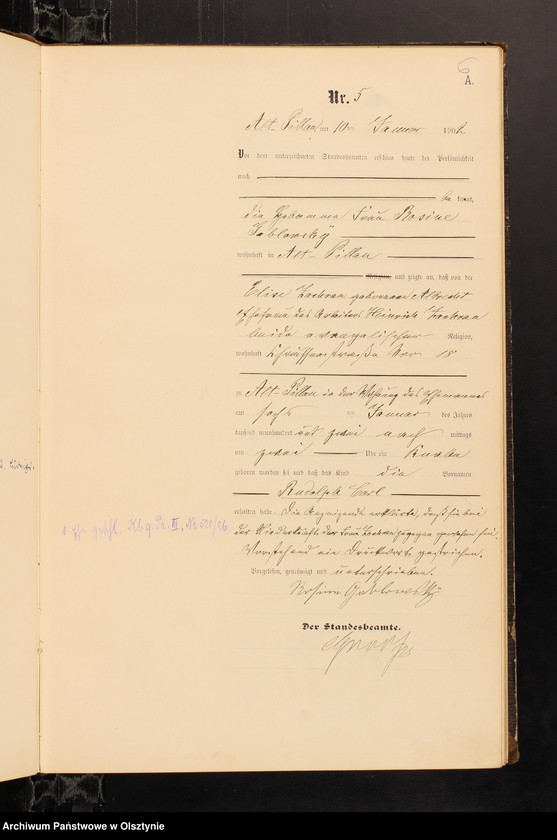 6
A.
Nr. 5
Alt-Pillau am 10ten Januar 1902
Vor dem unterzeichneten Standesbeamten erschien heute, der Persönlichkeit
nach
bekannt,
die Hebamme Frau Rosine
wohnhaft in Alt-Pillau
Religion, und zeigte an, daß von der
Elise geborenen Albrecht
Ehefrau des Arbeiters Heinrich
beide evangelischer Religion,
wohnhaft Chausseestraße Nro 18
zu Alt-Pillau in der Wohnung des Ehemannes
am sechs ten Januar des Jahres
tausend neunhundert und zwei nach mittags
um zwei Uhr ein Knabe
geboren worden sei und daß das Kind die Vornamen
Rudolph Carl
erhalten habe. Die Anzeigende erklärte, daß sie bei
der Niederkunft der Frau zugegen gewesen sei.
Vorstehend ein Druckwort gestrichen.
Vorgelesen, genehmigt und unterschrieben.
Rosine
Der Standesbeamte.
1. Ehe geschl. Kbg. Pr. II, Nr.
Archiwum Państwowe w Olsztynie